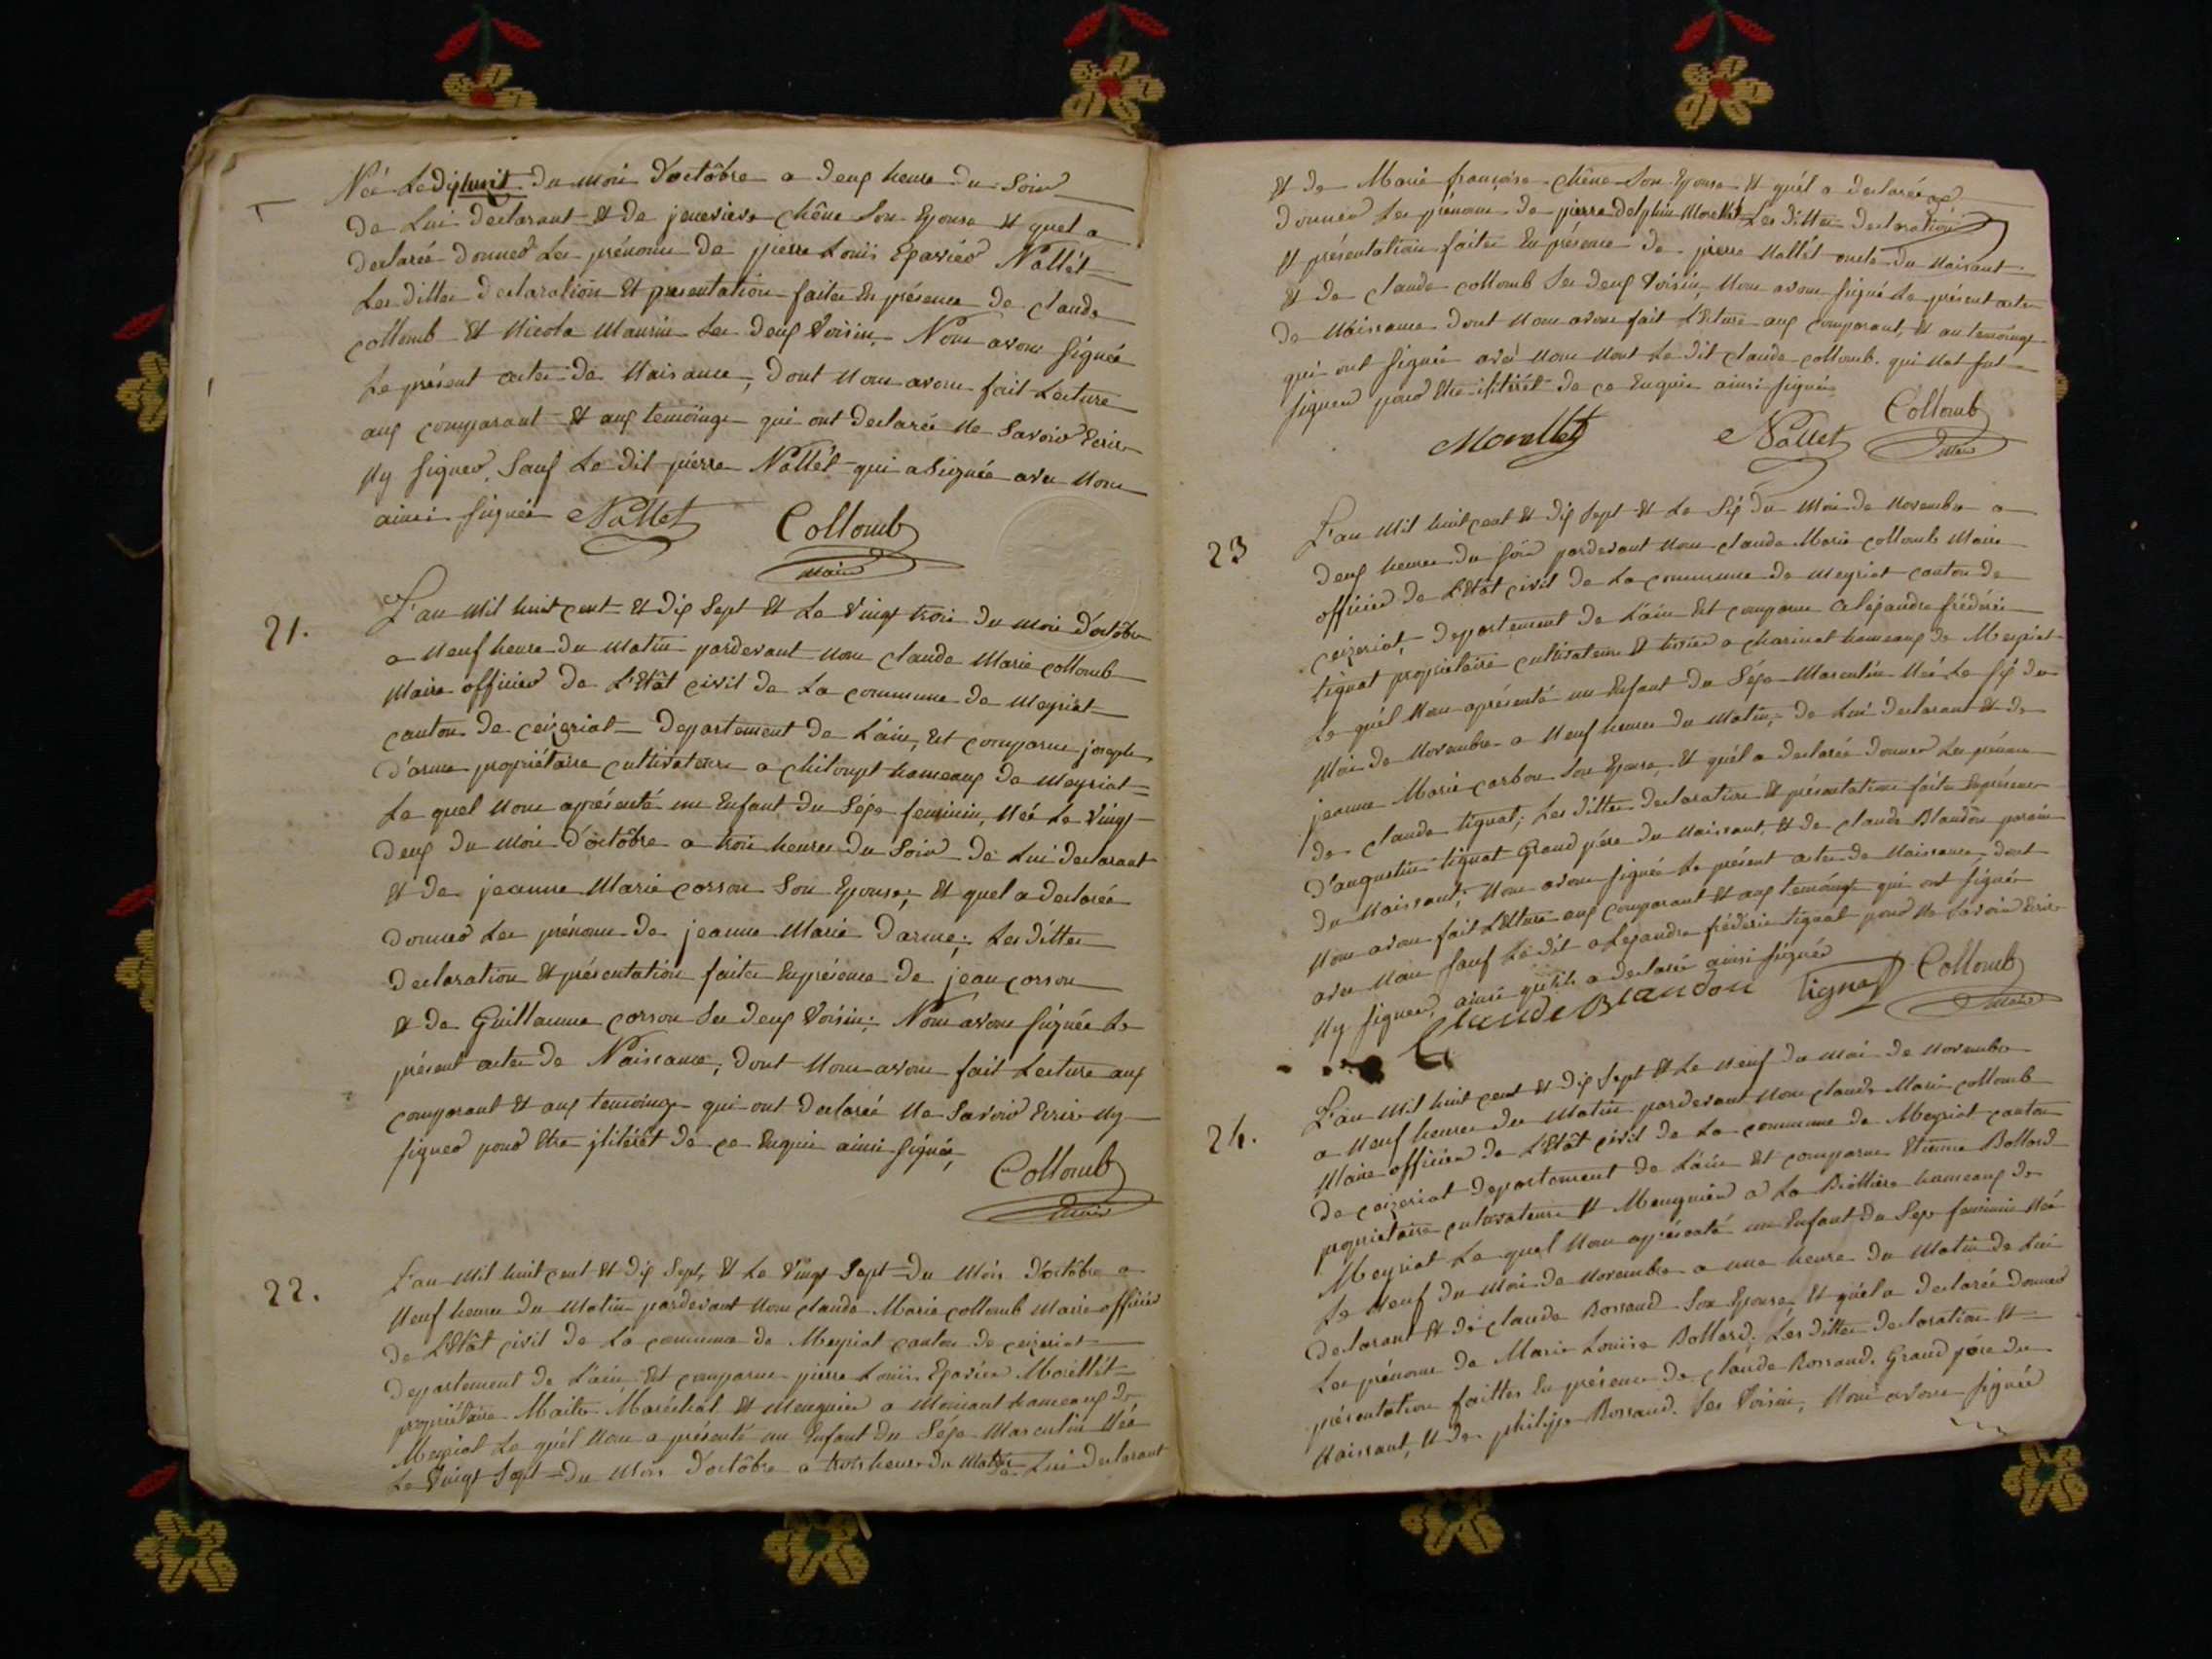 Néé Le dixhuit du mois d'octôbre a deux heure du Soir
de Lui declarant Et de jenevieve chêne Son Epouse Et quel a
declarée donner Les prénoms de pierre Louis Exavier Nallét
Les dittes declaration Et presentation faites En présence de claude
collomb Et Nicola Maurin Les deux Voisin. Nous avons Signée
Le présent actes de Naisance, dont Nous avons fait Lecture
aux comparant Et aux temoings qui ont declarée Ne Savoir Ecrire
Ny Signer, Sauf Le dit pierre Nallét qui a Signée avec Nous
ainsi Signée Nallet Collomb
Maire
21.
L'an Mil huit cent Et dix Sept Et Le Vingt trois du mois d'octôbre
a Neuf heure du Matin pardevant Nous claude Marie collomb
Maire officier de L'Etât civil de La commune de Meyriat
canton de ceizeriat departement de L'ain, Est comparue joseph
d'arme propriétaire cultivateur a chiloupt hameaux de Meyriat
Le quel Nous aprésenté un Enfant du Séxe feminin, Néé Le Vingt
deux du mois d'octôbre a trois heures du Soir de Lui declarant
Et de jeanne Marie corson Son Epouse; Et quel a declarée
donner Les prénoms de jeanne Marie darme; Les dittes
declaration Et présentation faites Enprésence de jean corson
Et de Guillaume corson Les deux Voisin; Nous avons Signée Le
présent actes de Naissance, dont Nous avons fait Lecture aux
comparant Et aux temoings qui ont declarée Ne Savoir Ecrire Ny
Signer pour Etre jlitérét de ce Enquis ainsi Signée,
Collomb
Maire
22.
L'an Mil huit cent Et dix Sept, Et Le Vingt Sept du Mois d'octôbre a
Neuf heures du Matin pardevant Nous claude Marie collomb Maire officier
de L'Etât civil de La commune de Meyriat canton de ceizeriat
departement de L'ain, Est comparue pierre Louis Exavier Moréllét
propriétaire Maitre Maréchal Et Meugnier a Moinant hameaux de
Meyriat Le quél Nous a présenté un Enfant du Séxe Masculin Néé
Le Vingt Sept du Mois d'octôbre a trois heures du Matin de Lui declarant
Et de Marie françoise chêne Son Epouse Et quél a declarée
donner Les prénoms de pierre delphin Moréllét Les dittes declaration
Et présentation faites En présence de pierre Nallét oncle du Naissant
Et de claude collomb Les deux Voisin, Nous avons Signé Le présent actes
de Naissance dont Nous avons fait L'ecture aux comparant, Et au temoings
qui ont Signée avec Nous Nont Le dit claude collomb. qui Nat fut
Signer pour Etre ilitérét de ce Enquis ainsi Signée
Morellet Nallet Collomb
Maire
23
L'an Mil huit cent Et dix Sept Et Le Six du Mois de Novembre a
deux heures du Soir pardevant Nous claude Marie collomb Maire
officier de L'Etât civil de La commune de Meyriat canton de
ceizeriat, departement de L'ain Est comparue aléxandre fréderic
tignat propriétaire cultivateur Et tissier a charinat hameaux de Meyriat
Le quél Nous aprésenté un Enfant du Séxe Masculin Néé Le Six du
Mois de Novembre a Neuf heures du Matin; de Lui declarant Et de
jeanne Marie carbon Son Epouse, Et quél a declarée donner Les prénoms
de claude tignat; Les dittes declaration Et présentation faites Enprésence
d'augustin tignat Grand pére du Naissant, Et de claude Blandon parain
du Naissant; Nous avons Signée Le présent actes de Naissance dont
Nous avons fait L'Ecture aux comparant Et aux temoings qui ont Signée
avec Nous Sauf Le dit aléxandre fréderic tignat pour Ne Savoir Ecrire
Ny Signer, ainsi qu'il a declaré ainsi Signée
Claude Blandon Tignat Collomb
Maire
24.
L'an Mil huit cent Et dix Sept Et Le Neuf du Mois de Novembre
a Neuf heures du Matin pardevant Nous claude Marie collomb
Maire officier de L'Etât civil de La commune de Meyriat canton
de ceizeriat departement de L'ain Est comparue Etienne Bollard
propriétaire cultivateur Et Meugnier a La Biollière hameaux de
Meyriat Le quel Nous aprésenté un Enfant du Sexe feminin Néé
Le Neuf du Mois de Novembre a une heure du Matin de Lui
declarant Et de claude Borrand Son Epouse, Et quél a declarée donner
Les prénoms de Marie Louise Bollard; Les dittes declaration Et
présentation faittes En présence de claude Borrand. Grand pére du
Naissant, Et de philippe Borrand. Les Voisin, Nous avons Signée